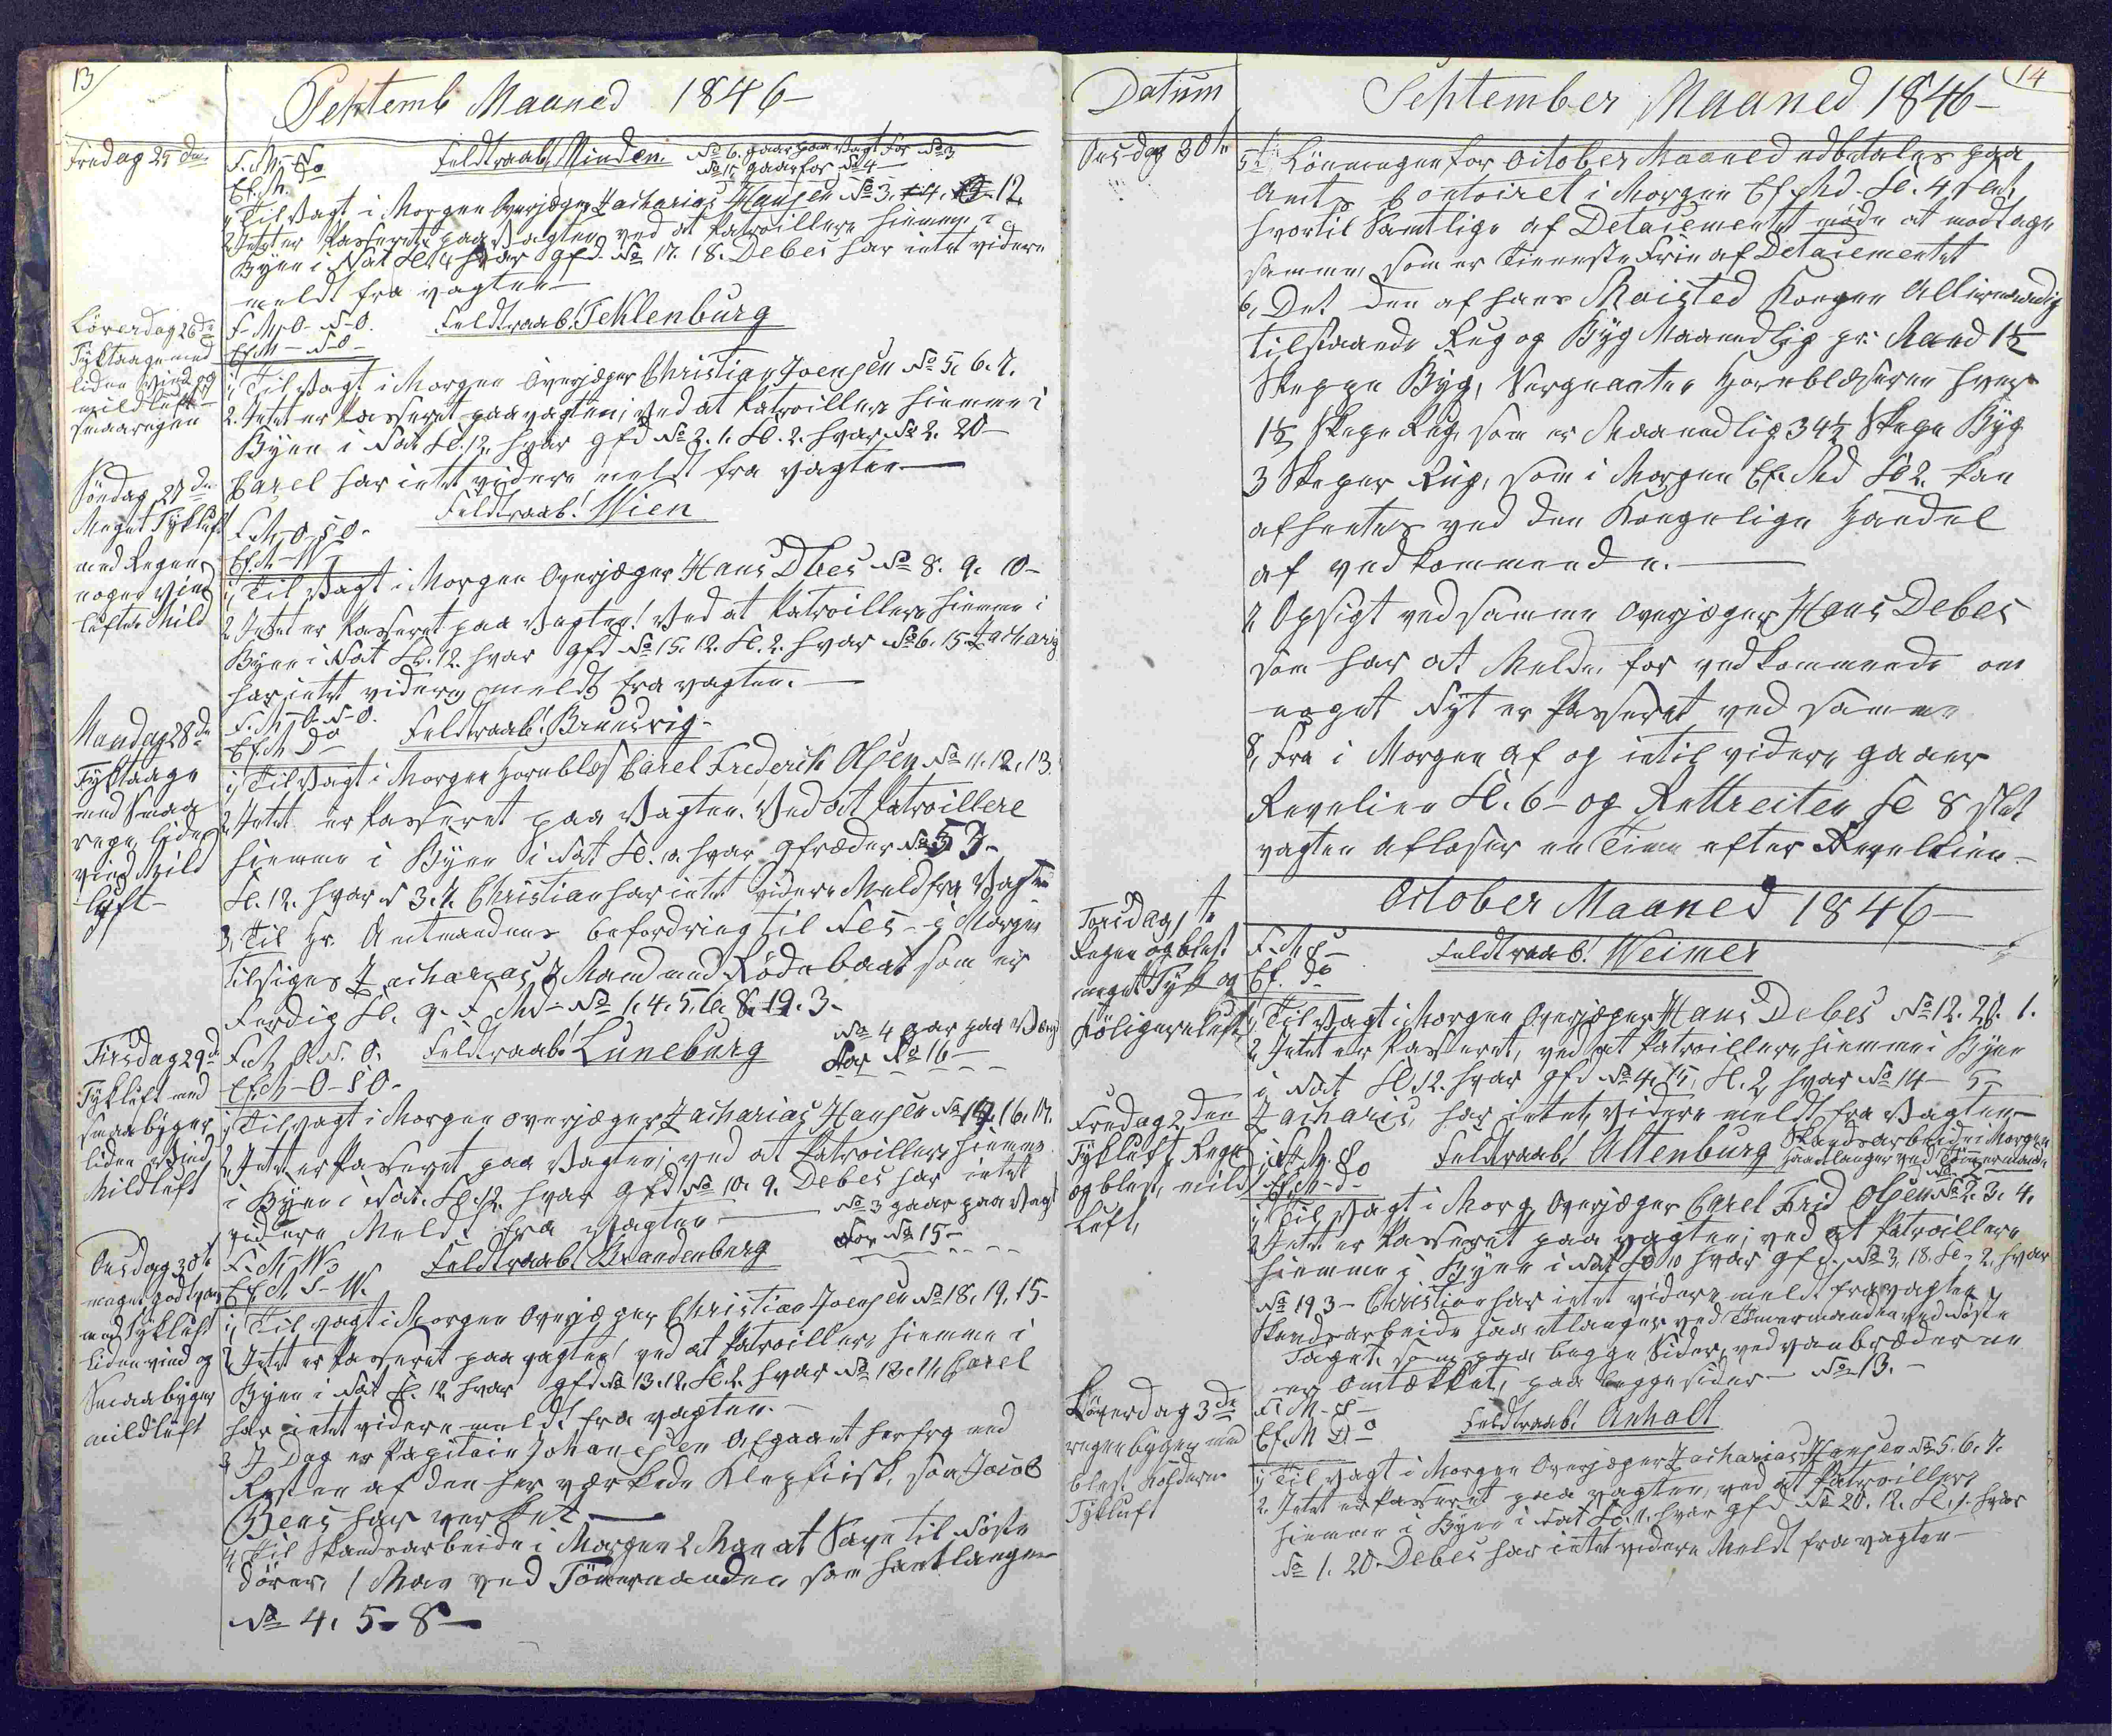 13/
Septemb Maaned 1846 –
Fredag 25 de
F. M. S O
Ef. M.
Feldtraab! Minden.
No 6. gaar paa Vagt for No 3
No 11 gaar for No 4 –
1, Til Vagt i Morgen Overjæger Zacharias Hansen No 3. 4. 12
2 Intet er Passeret paa Vagten ved at Patroillere hiemme i
Byen i Nat Kl. 12 hvar gfd. No 17. 18. Debes har intet videre
meldt fra vagten –
Löverdag 26 de
Tyktaage med
liden Vind og
mild luft
smaaregen
F. M. O. S-O.
Ef. M – S-O –
Feldtraab! Teklenburg
1, Til Vagt i Morgen Overjæger Christian Joensen No 5. 6. 7.
2. Intet er Passeret paa vagten, ved at Patroillere hiemme i
Byen i Nat Kl. 12. hvar gfd No 2. 1. Kl. 2. hvar No 2. 20 –
Carel har intet videre meldt fra vagten –
Söndag 27 de
Meget Tykluft
med Regen
noget Vind
luften Mild
F. M. O. S O.
Ef. M – W
Feldtraab! Wien
1, Til Vagt i Morgen Overjæger Hans Dbes No 8. 9. 10 –
2 Intet er Passeret paa Vagten! Ved at Patroillere hiemme i
Byen i Nat Kl. 12. hvar gfd No 15. 12. Kl. 2. hvar No 6. 15 – Zacharis
har intet videre meldt fra vagten. –
Mandag 28 de
Tyktaage
med Smaa
regn liden
vind Mild
luft –
F. M. O. S-O.
Ef. M Do
Feldtraab! Brunsvig –
1, Til Vagt i Morgen Hornblæs Carel Frederik Olsen No 11. 12. 13.
2 Intet er Passeret paa Vagten. Ved at Patroillere
hiemme i Byen i Nat Kl. 10. hvar gfreder No 5 3 –
Kl. 12. hvar N 3. 4. Christian har intet videre Meldt fra Vagten
3, Til Hr. Amtmandens befordring til Nes – i Morgen
Tilsiges Zacharias 7 Mand med Rödebaat som er
Ferdig Kl. 9. F. Md – No 1. 4. 5. 6. 8. 19. 3 –
Tirsdag 29 d
Tykluft med
smaabyger
liden Vind
Mildluft
F. M. O. N. O.
Ef. M – O – S O –
Feldtraab! Luneburg
No 4 gar paa Vagt
for No 16 –
1, Til vagt i Morgen overjæger Zacharias Hansen No 14. 16. 17.
2, Intet er Passeret paa Vagten, ved at Patroillere hiemme
i Byen i Nat. Kl. 12. hvar gfd No 10. 9. Debes har intet
videre Meldt fra Vagten –
No 3 gaar paa Vagt
for No 15 –
Onsdag 30 te
meget godt
med Tykluft
liden vind og
Smaabyger
mildluft
F. M. W
Ef. M S – W.
Feldtraab! Brandenburg
1, Til vagt i Morgen Overjæger Christian Joensen No 18. 19. 15 –
2 Intet er Passeret paa vagten! ved at Patroillere hiemme i
Byen i Nat Kl. 12 hvar gfd No 13. 12. Kl. 2. hvar No 18. 11. Carel
har intet videre meldt fra vagten. –
3 I Dag er Capitain Johannesen Afgaaet herfra med
Resten af den her værkede Klepfiisk, som Jacob
Bens har verket –
4 Til Skandsarbeide i Morgen 2 Man at Save til Nöste
dörer, 1 Man ved Tömermanden som hantlanger
No 4. 5 – 8 –
14
Datum
September Maaned 1846 –
Onsdag 30 te
5, Lönningen for October Maaned udbetales paa
Amts Contoiret i Morgen Ef. Md. Kl. 4 slet,
hvortil Samtlige af Detacementet möde at modtage
samme, som er Tieneste Frie af Detacementet
6, Det den af hans Maisted Kongen Allernaadig
tilstaaede Rug og Byg Maanedlig pr: Mand 1½
Skeppe Byg, Sergeanten Hornblæseren hver
1½ Skepe Rug, som er Maanedlig 34½ Skepe Byg
3 Skeper Rug, som i Morgen Ef. Md Kl 2. kan
afhentes ved den Kongelige Handel
af vedkommende. –
7 Opsigt ved samme Overjæger Hans Debes
som har at Melde for vedkommende om
noget Nyt er Passeret ved samme
8, Fra i Morgen af og intil videre gaaer
Revelien Kl. 6 – og Rettreiten Kl 8 slet
vagten afloser en Time efter Revellien –
October Maaned 1846 –
Torsdag 1 te
Regen og blest
meget Tyk og
köligere luft
F. M. S –
Ef. do
Feldtraab! Weimer
1, Til Vagt i Morgen Overjæger Hans Debes No 12. 20. 1.
2 Intet er Passeret, ved at Patroillere hiemme i Byen
i Nat Kl. 12. hvar gfd No 4. 15. Kl. 2 hvar No 14 – 5 –
Zacharis har intet videre meldt fra Vagten –
Fredag 2 den
Tykluft, Regn
og blest, mild
luft,
F. M. S
Ef. M – do
Feldtraab! Altenburg
Skandsarbeide i Morgen
haantlanger ved Tömermanden
1, Til Vagt i Morg, Overjæger Carel Frid Olsen No 2. 3. 4.
2 Intet er Passeret paa vagten; ved at Patroillere
hiemme i Byen i Nat Kl 10 hvar gfd. No 3. 18. Kl. 2. hvar
No 19 3 – Christian har intet videre meldt fra vagten
Skandsarbeide haantlanger ved Tömermanden ved Nöste
Taget, som paa begge Sider, ved vanbræderne
er Omtækket, paa begge sider – No 13. –
Löverdag 3 de
regenbyger med
blest koldere
Tykluft
F. M – S –
Ef. M Do
Feldtraab! Anhalt
1, Til vagt i Morgen Overjæger Zacharias Hansen No 5. 6. 7.
2. Intet er Passeret paa vagten, ved at Patroillere
hiemme i Byen i Nat Kl. 11. hvar gfd No 20. 12. Kl. 1. hvar
No 1. 20. Debes har intet videre Meldt fra vagten –